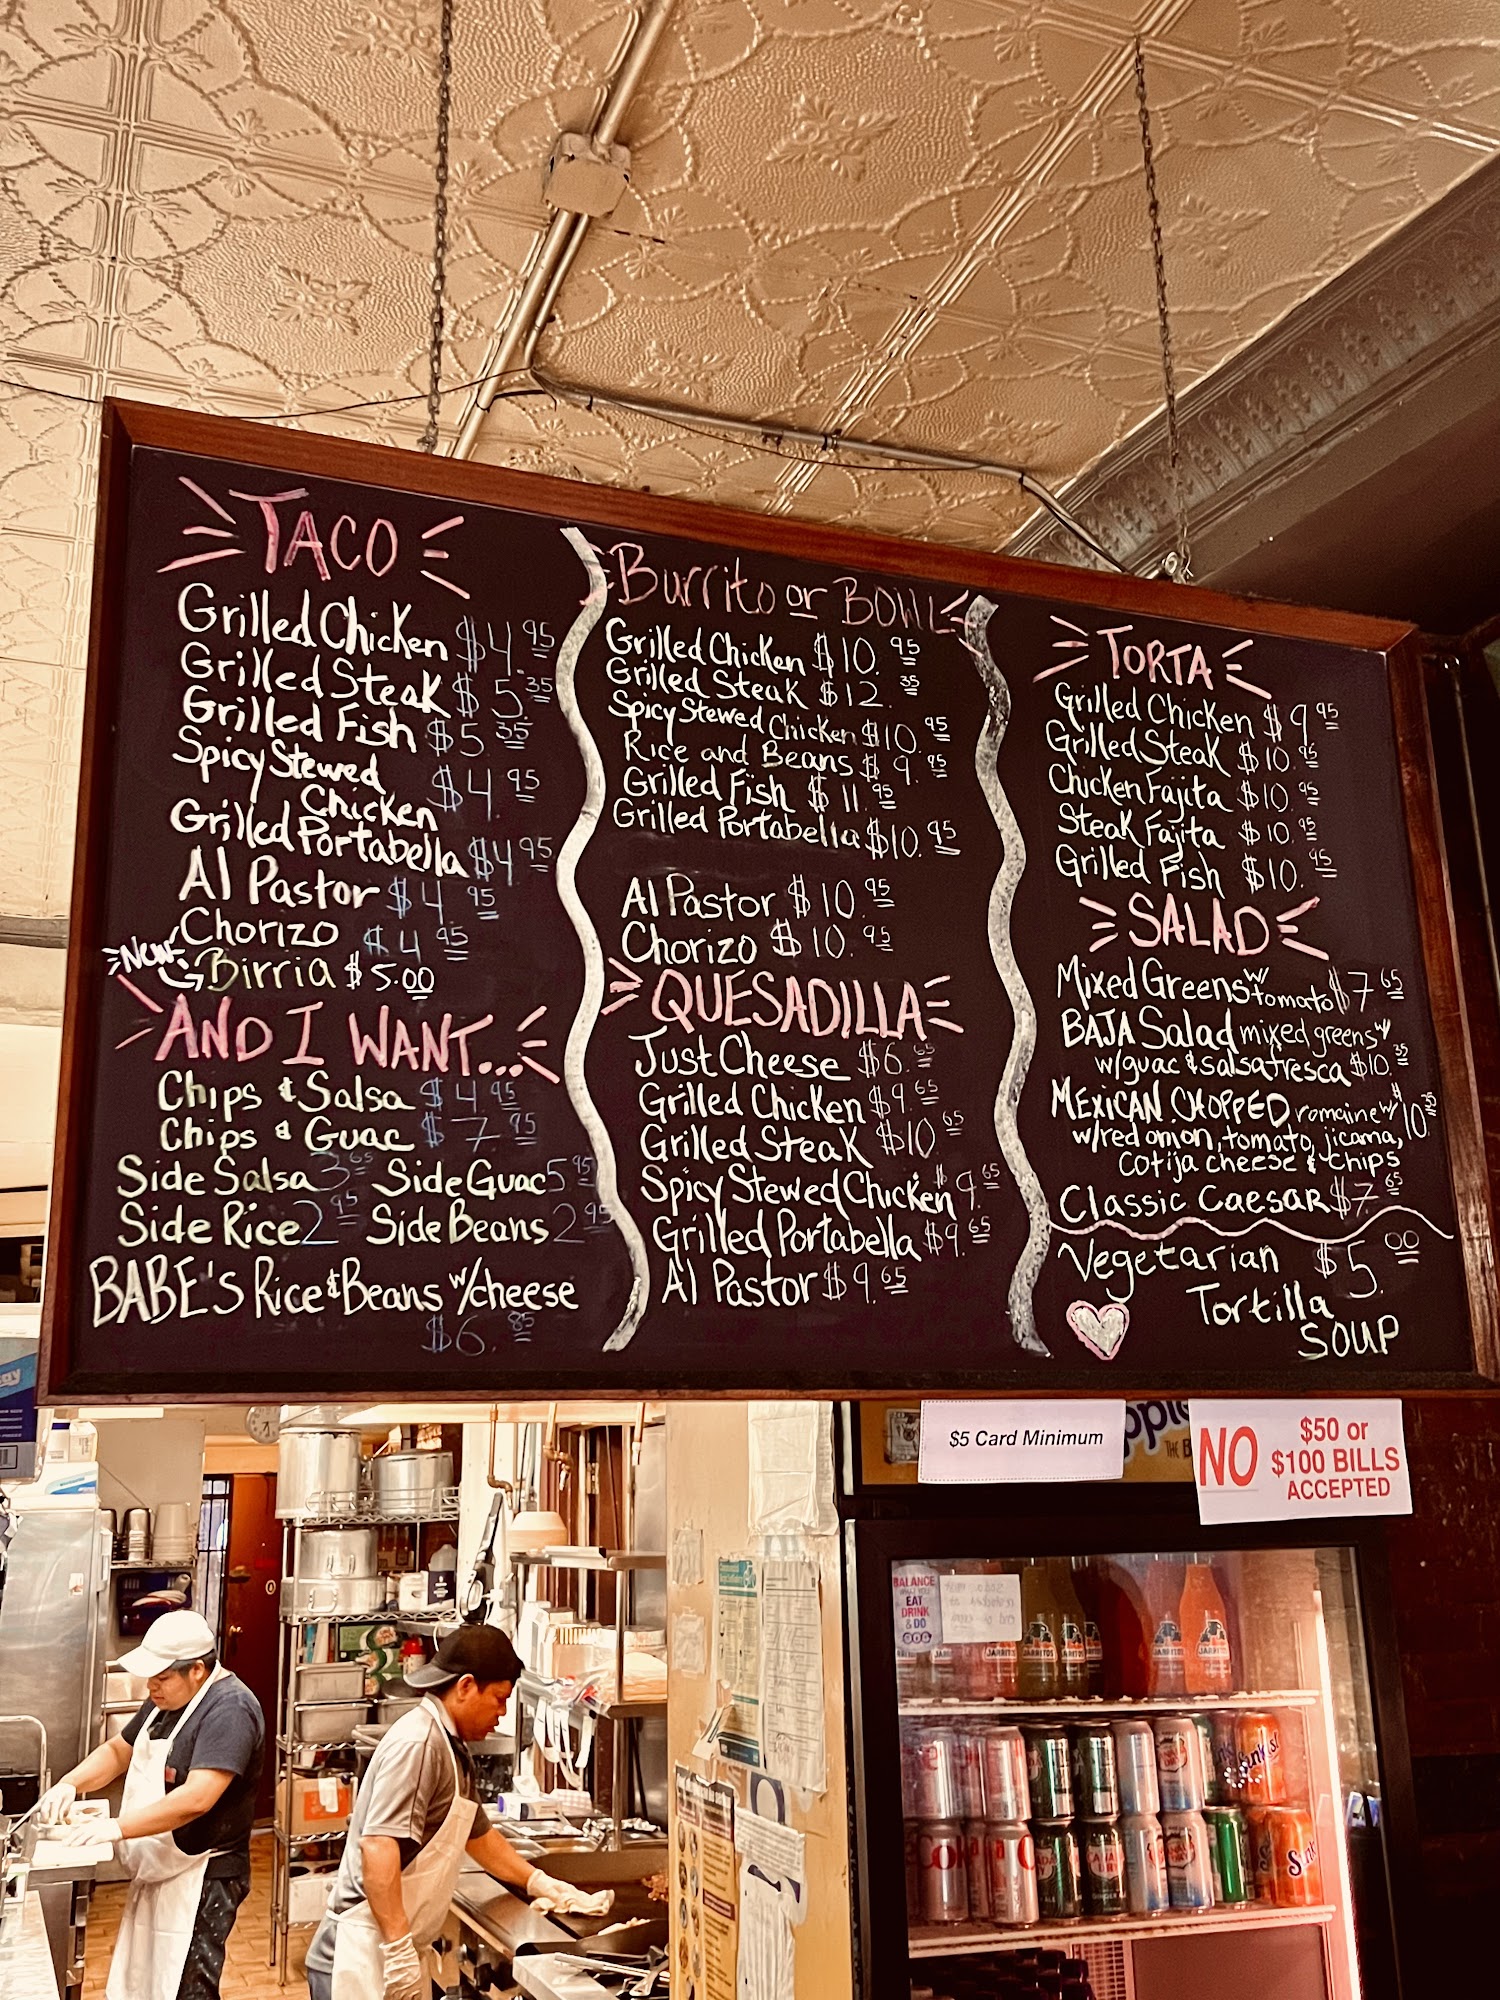 TACO
Grilled Chicken $4.95
Grilled Steak $5.35
Grilled Fish $5.35
Spicy Stewed
Chicken $4.95
Grilled Portabella $4.95
Al Pastor $4.95
Chorizo $4.95
New Birria $5.00
AND I WANT...
Chips & Salsa $4.95
Chips & Guac $7.95
Side Salsa 3.65 Side Guac 5.95
Side Rice 2.95 Side Beans 2.95
BABE'S Rice & Beans w/cheese
$6.85
Burrito or BOWL
Grilled Chicken $10.95
Grilled Steak $12.35
Spicy Stewed Chicken $10.95
Rice and Beans $9.95
Grilled Fish $11.95
Grilled Portabella $10.95
Al Pastor $10.95
Chorizo $10.95
QUESADILLA
Just Cheese $6.65
Grilled Chicken $9.65
Grilled Steak $10.65
Spicy Stewed Chicken $9.65
Grilled Portabella $9.65
Al Pastor $9.65
TORTA
Grilled Chicken $9.95
Grilled Steak $10.95
Chicken Fajita $10.95
Steak Fajita $10.95
Grilled Fish $10.95
SALAD
Mixed Greens w/ tomato $7.65
BAJA Salad mixed greens w/
w/guac & salsa fresca $10.35
MEXICAN CHOPPED romaine w/ $10.35
w/red onion, tomato, jicama,
cotija cheese & chips
Classic Caesar $7.65
Vegetarian $5.00
Tortilla
SOUP
$5 Card Minimum
NO $50 or
$100 BILLS
ACCEPTED
BALANCE
EAT
DRINK
& DO
JARRITOS
JARRITOS
JARRITOS
JARRITOS
Sunkist